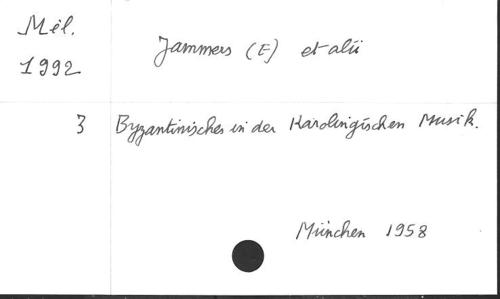 Mél.
1992
Jammers (E) et alii
3 Byzantinisches in der Karolingischen Musik.
München 1958